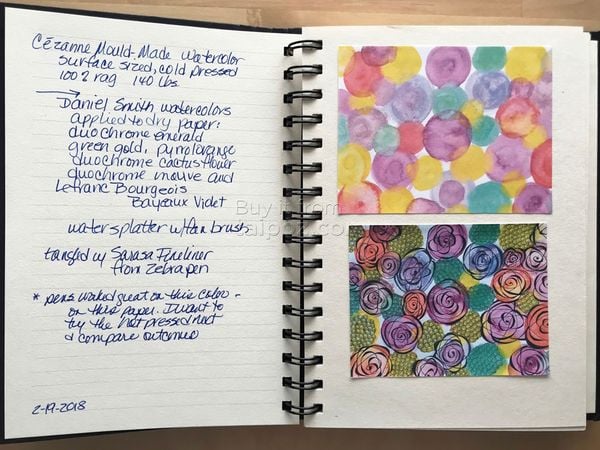 Cézanne Mould-Made Watercolor
surface sized, cold pressed
100% rag 140 lbs.
Daniel Smith watercolors
applied to dry paper:
duochrome emerald
green gold, pyrrol orange
duochrome cactus flower
duochrome mauve and
Lefranc Bourgeois
Bayeaux Violet
water splatter w/fan brush
tangled w/ Sarasa Fineliner
from Zebrapen
* pens worked great on this color -
on this paper. I want to
try the hot pressed next
& compare outcomes
2-19-2018
Buy it from
taipoz.co